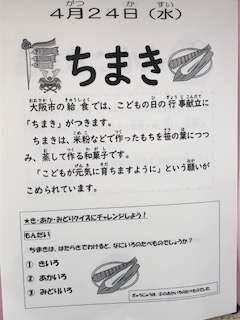 4月24日（水）
ちまき
大阪市の給食では、こどもの日の行事献立に
「ちまき」がつきます。
ちまきは、米粉などで作ったもちを笹の葉につつ
み、蒸して作る和菓子です。
「こどもが元気に育ちますように」という願いが
こめられています。
★き・あか・みどりクイズにチャレンジしよう！
もんだい
ちまきは、はたらきでわけると、なにいろのたべものでしょうか？
① きいろ
② あかいろ
③ みどりいろ